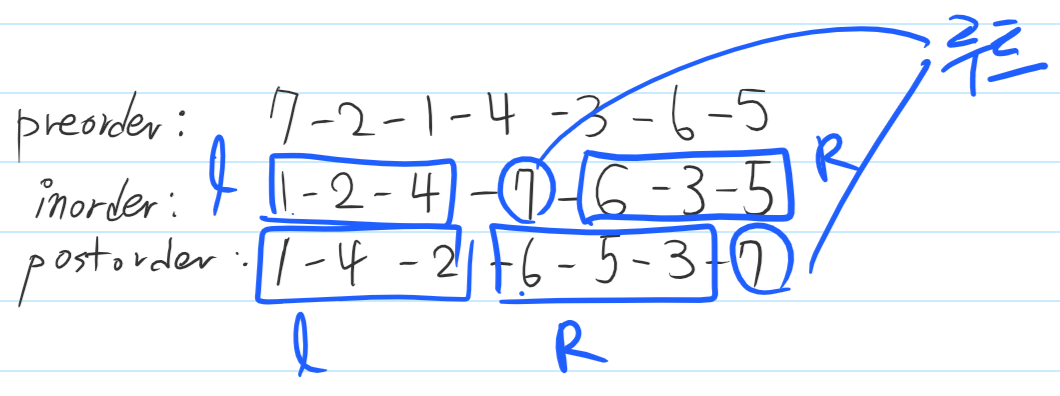 preorder: 7-2-1-4-3-6-5
l R
inorder: 1-2-4-7-6-3-5
postorder: 1-4-2-6-5-3-7
l R